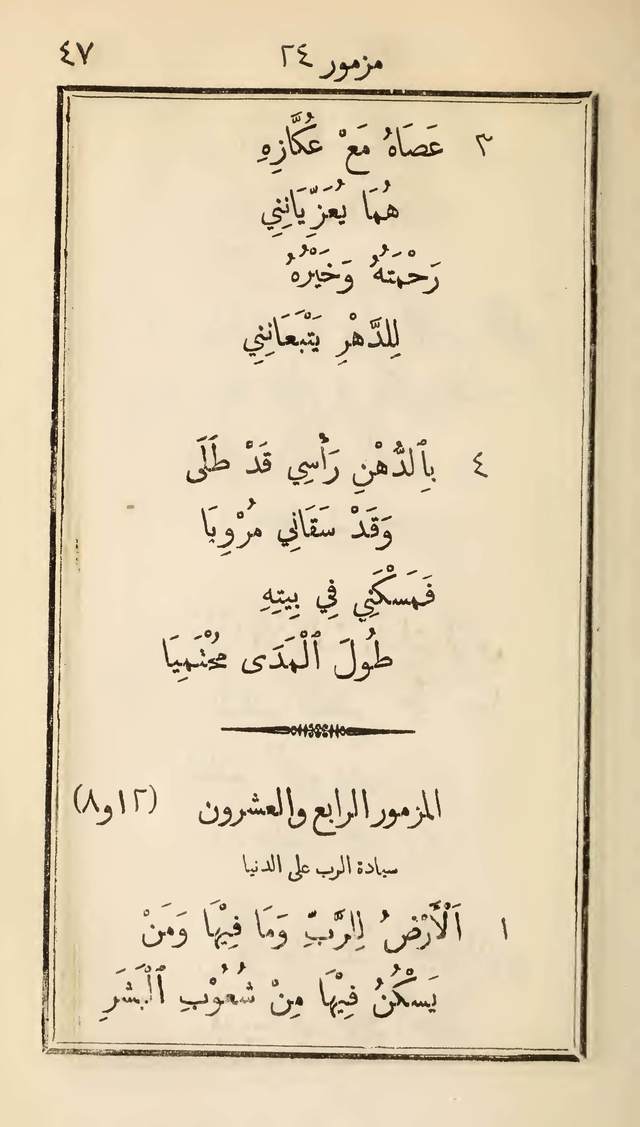 مزمور ٢٤ ٤٧
٣ عَصَاهُ مَعْ عُكَّازِهِ
هُمَا يُعَزِّيَانِنِي
رَحْمَتُهُ وَخَيْرُهُ
لِلدَّهْرِ يَتْبَعَانِنِي
٤ بِٱلدُّهْنِ رَأْسِي قَدْ طَلَى
وَقَدْ سَقَانِي مُرْوِيَا
فَمَسْكَنِي فِي بِيتِهِ
طُولَ ٱلْمَدَى مُحْتَمِيَا
المزمور الرابع والعشرون (١٢ و٨)
سيادة الرب على الدنيا
١ اَلْأَرْضُ لِلرَّبِّ وَمَا فِيْهَا وَمَنْ
يَسْكُنُ فِيْهَا مِنْ شُعُوْبِ ٱلْبَشَرِ